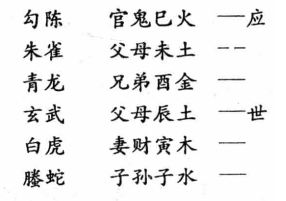 勾陈 官鬼巳火 —应
朱雀 父母未土 --
青龙 兄弟酉金 —
玄武 父母辰土 —世
白虎 妻财寅木 —
螣蛇 子孙子水 —